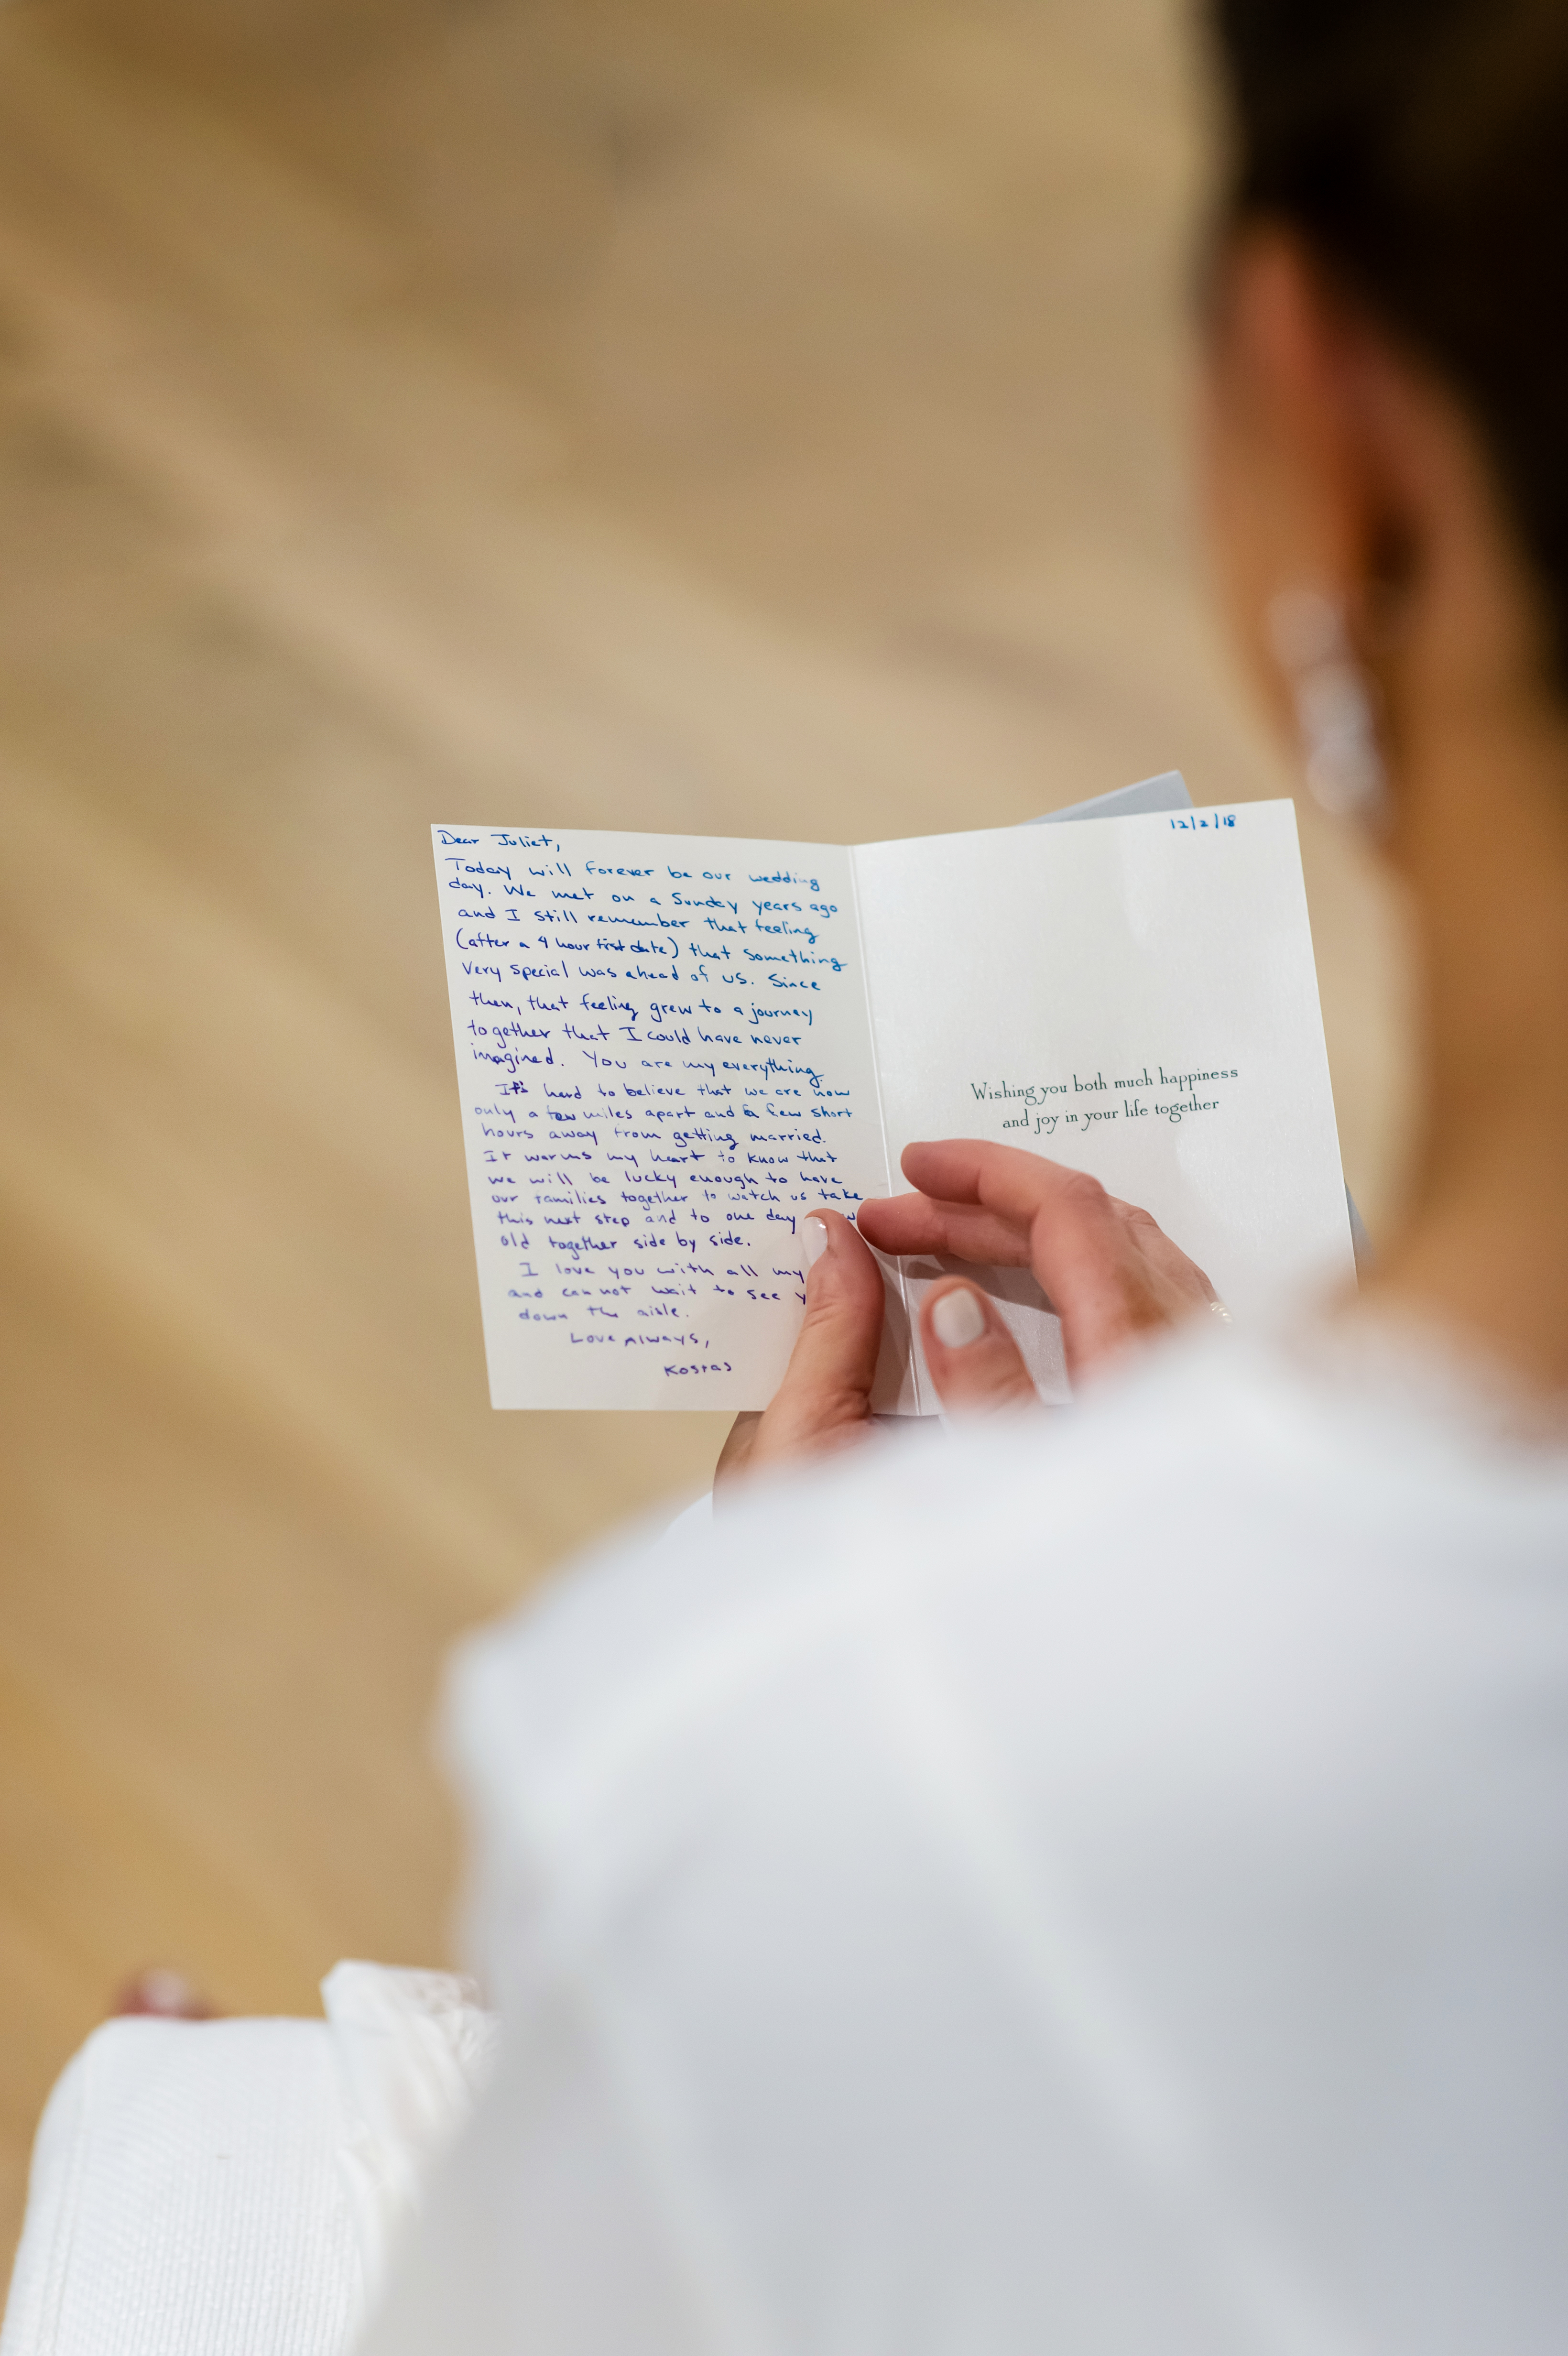 Dear Juliet,
Today will forever be our wedding
day. We met on a Sunday years ago
and I still remember that feeling
(after a 4 hour first date) that something
very special was ahead of us. Since
then, that feeling grew to a journey
together that I could have never
imagined. You are my everything.
It's hard to believe that we are now
only a few miles apart and a few short
hours away from getting married.
It warms my heart to know that
we will be lucky enough to have
our families together to watch us take
this next step and to one day
old together side by side.
I love you with all my
and can not wait to see
down the aisle.
Love Always,
Kostas
12/2/18
Wishing you both much happiness
and joy in your life together